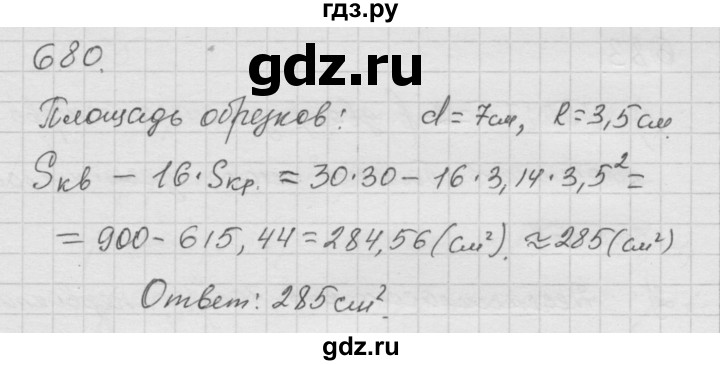 гдз.ру
680.
gdz.ru
Площадь обрезков: d = 7см, R = 3,5 см.
Sкв – 16·Sкр. = 30·30 – 16·3,14·3,5² =
= 900 – 615,44 = 284,56 (см²). ≈ 285 (см²)
Ответ: 285 см².
gdz.ru